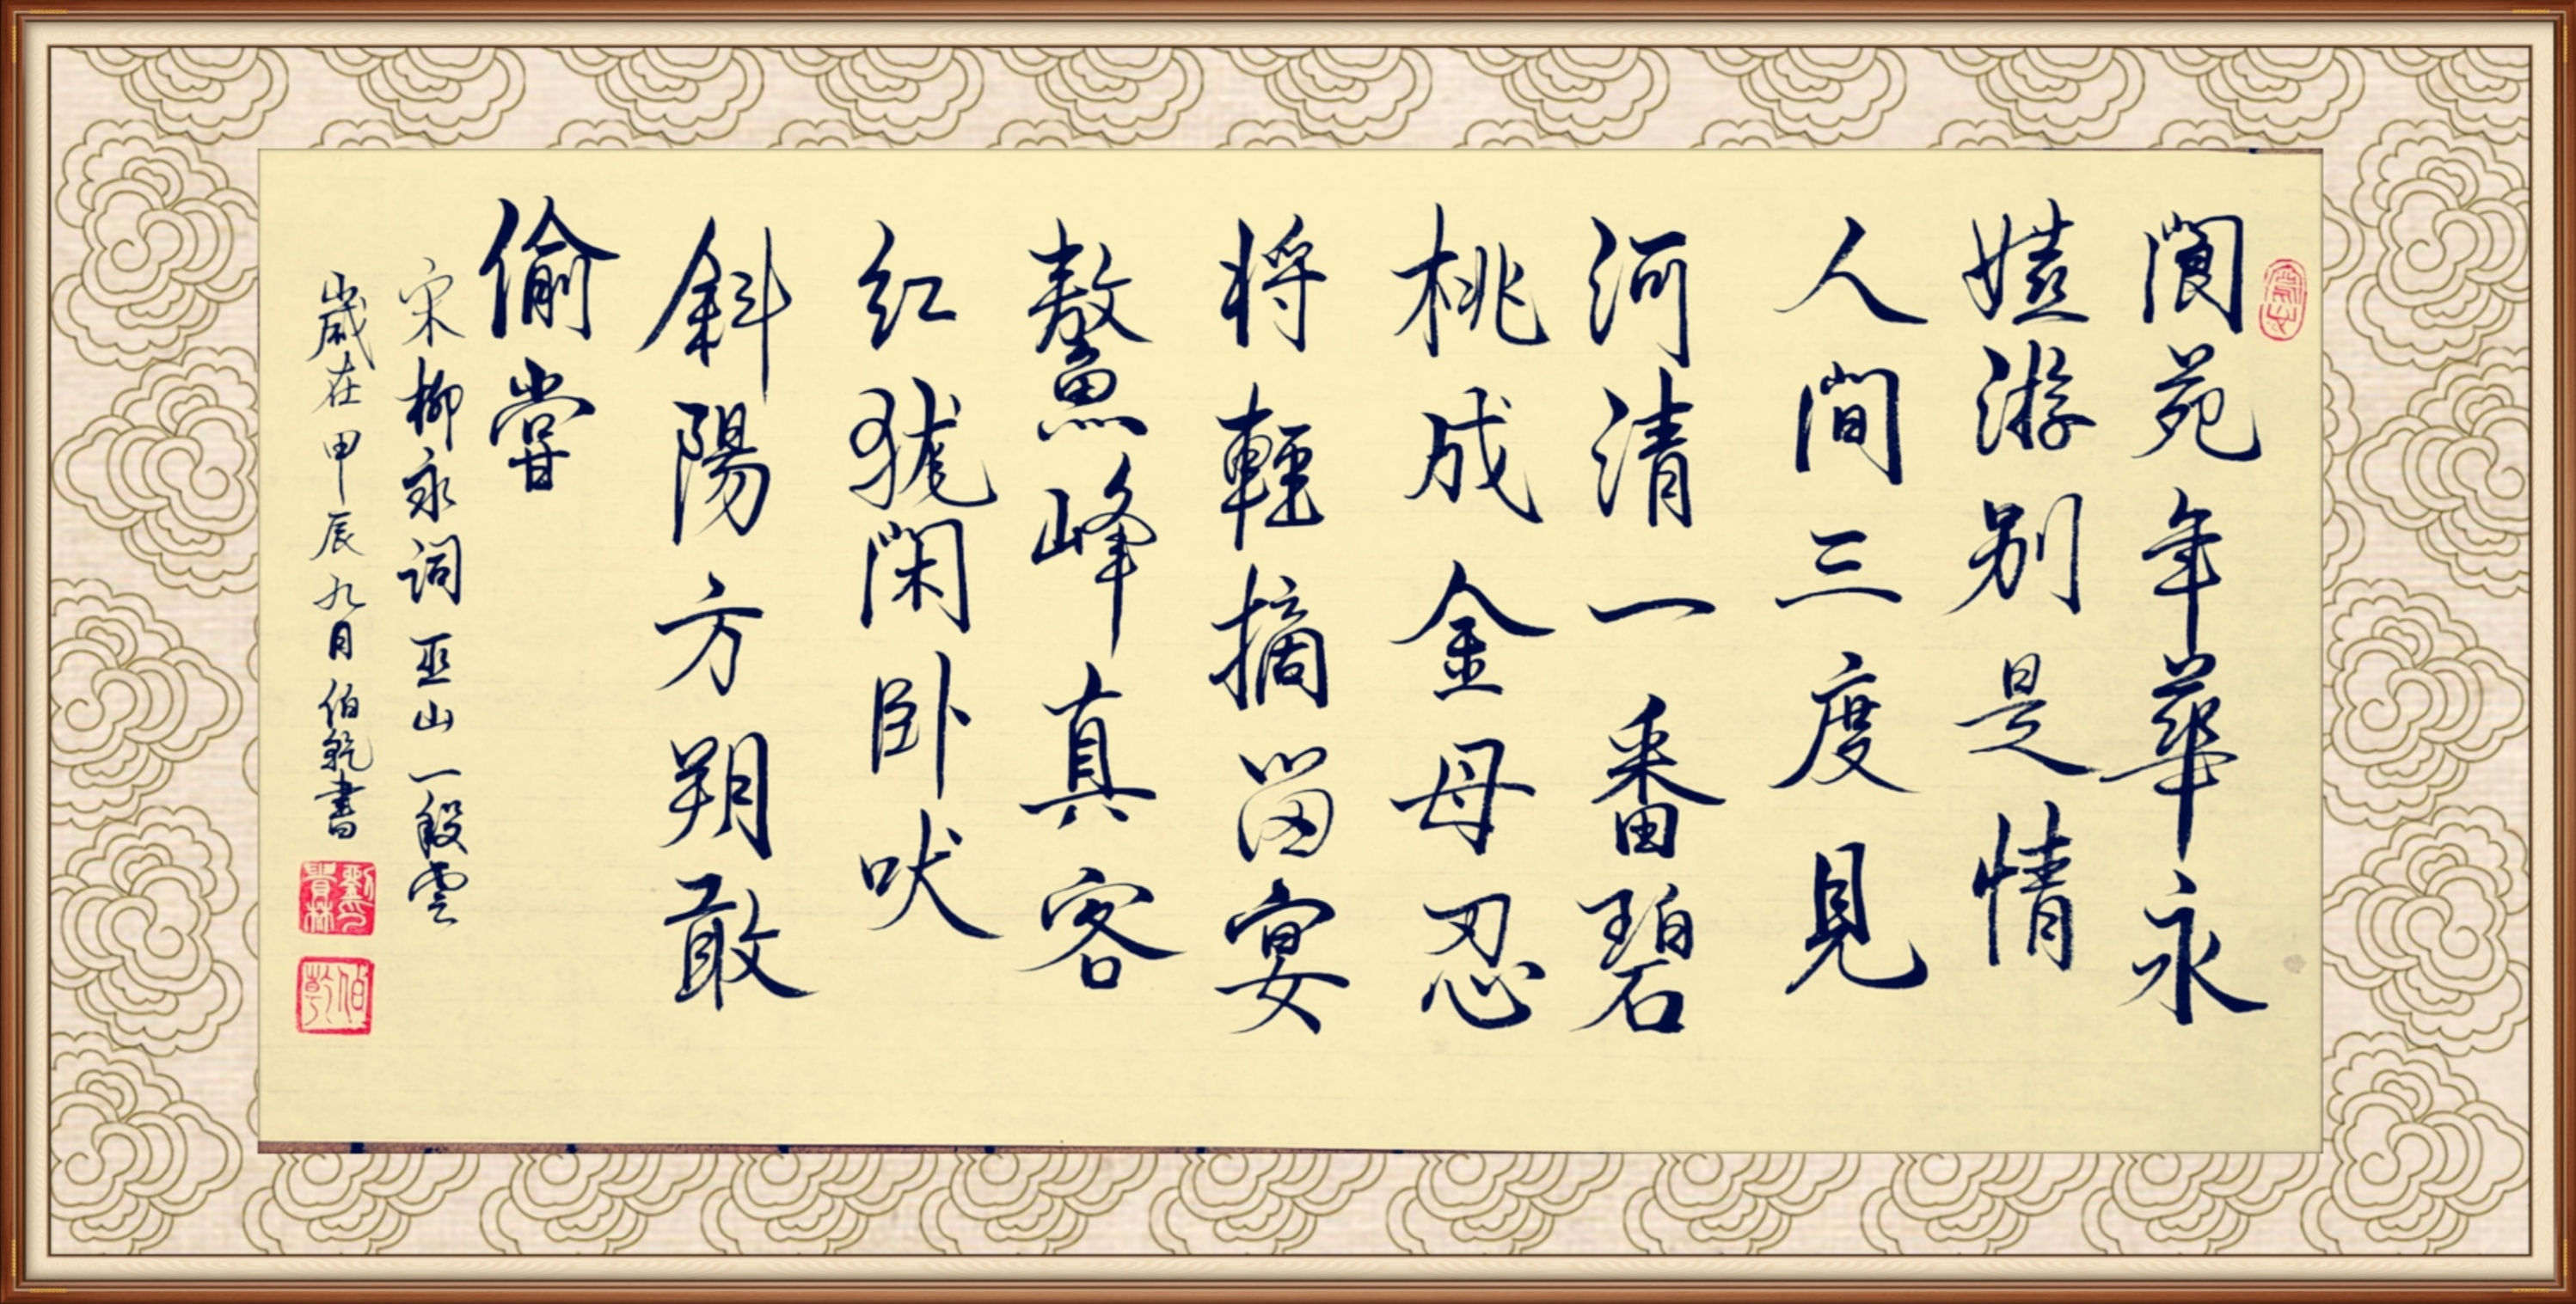 閬苑年華永
嬉游别是情
人間三度見
河清一番碧
桃成金母忍
将輕摘罶宴
鰲峰真客
紅狵閑卧吠
斜陽方朔敢
偷嘗
宋柳永词巫山一段雲
歲在甲辰九月伯乾書
劉貴林
伯乾